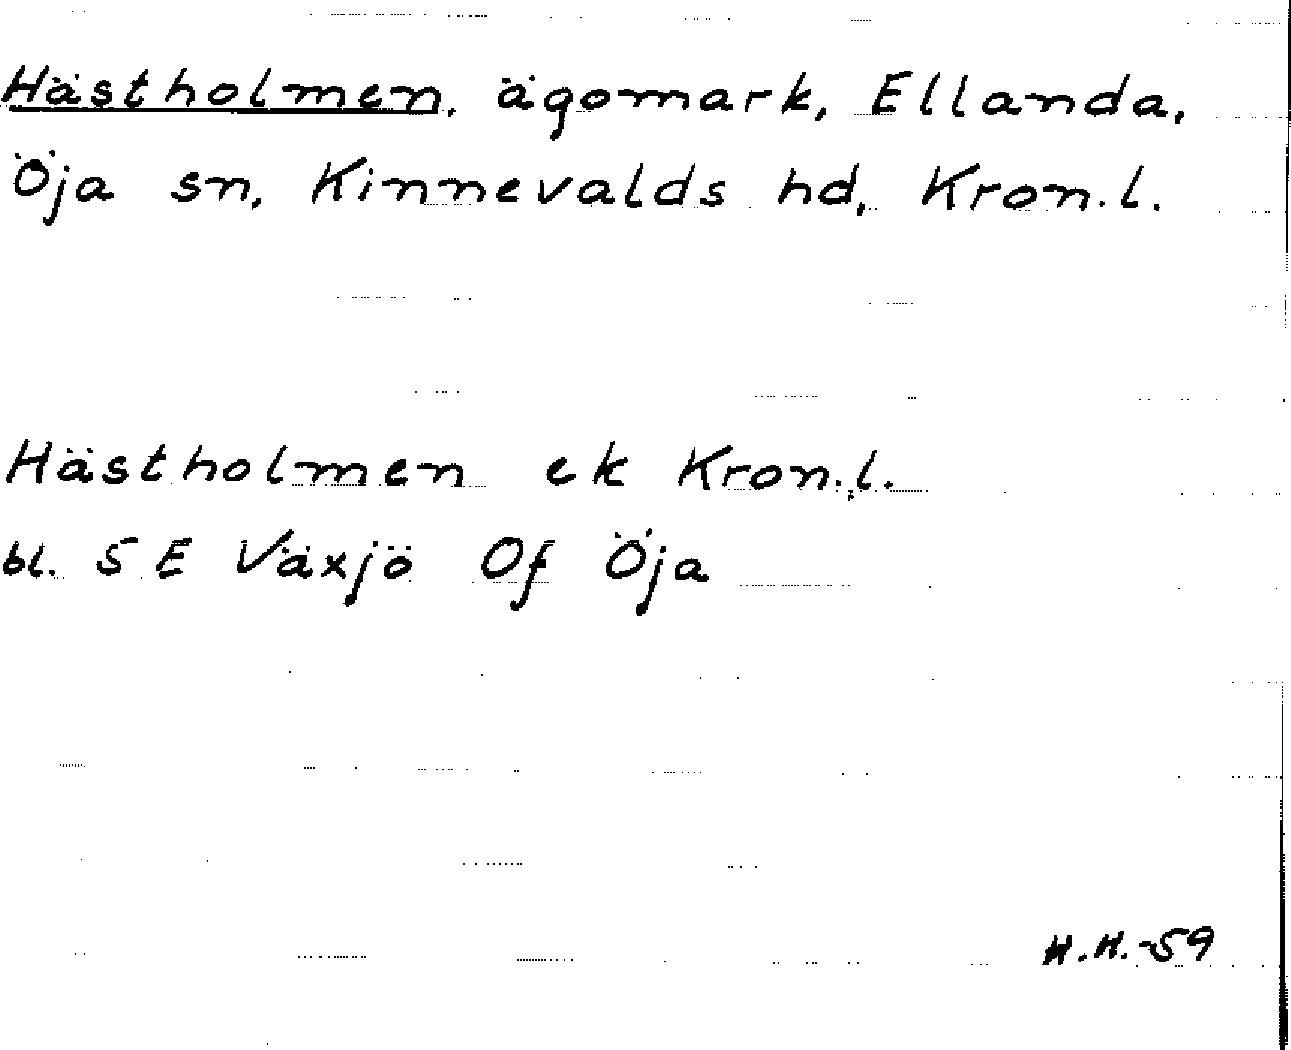 Hästholmen, ägomark, Ellanda,
Öja sn, Kinnevalds hd, Kron.l.
Hästholmen ek Kron.l.
bl. 5 E Växjö Of Öja
H.H.-59